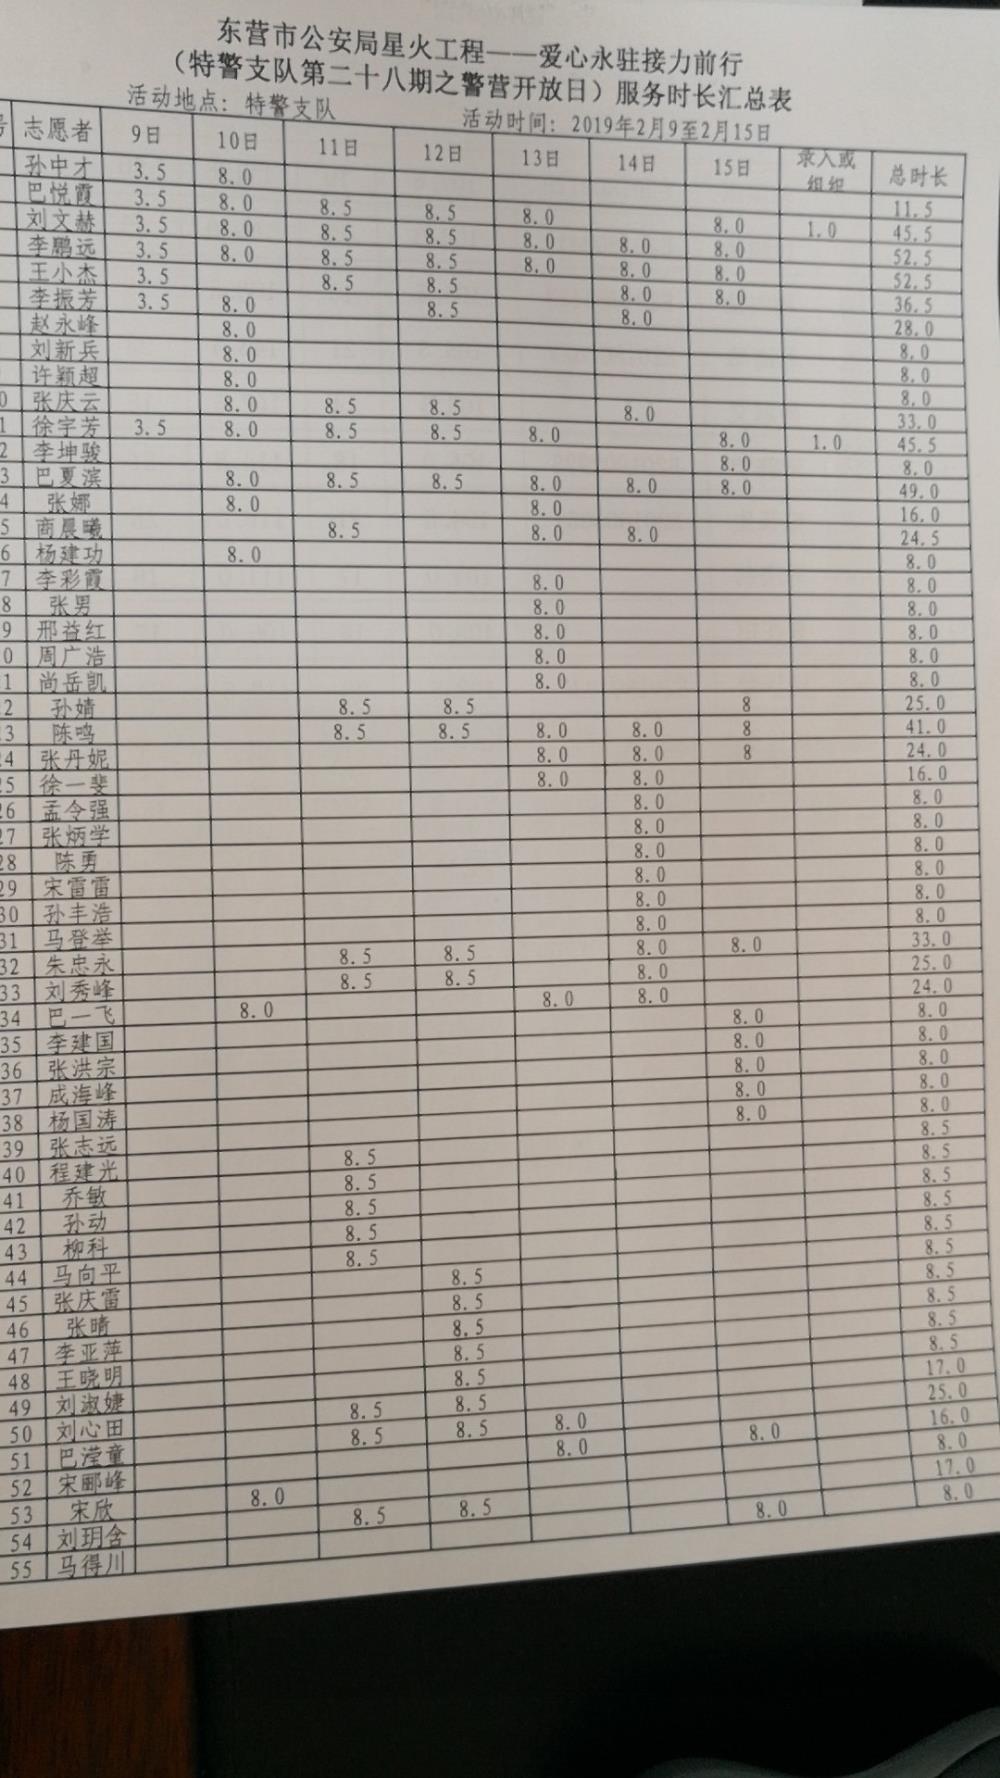 东营市公安局星火工程——爱心永驻接力前行
（特警支队第二十八期之警营开放日）服务时长汇总表
活动地点：特警支队 活动时间：2019年2月9至2月15日
号 志愿者 9日 10日 11日 12日 13日 14日 15日 录入或组织 总时长
孙中才 3.5 8.0 11.5
巴悦霞 3.5 8.0 8.5 8.5 8.0 8.0 1.0 45.5
刘文赫 3.5 8.0 8.5 8.5 8.0 8.0 8.0 52.5
李鹏远 3.5 8.0 8.5 8.5 8.0 8.0 8.0 52.5
王小杰 3.5 8.5 8.5 8.0 8.0 36.5
李振芳 3.5 8.0 8.5 8.0 28.0
赵永峰 8.0 8.0
刘新兵 8.0 8.0
许颖超 8.0 8.0
0 张庆云 8.0 8.5 8.5 8.0 33.0
1 徐宇芳 3.5 8.0 8.5 8.5 8.0 8.0 1.0 45.5
2 李坤骏 8.0 8.0
3 巴夏滨 8.0 8.5 8.5 8.0 8.0 8.0 49.0
4 张娜 8.0 8.0 16.0
5 商晨曦 8.5 8.0 8.0 24.5
6 杨建功 8.0 8.0
7 李彩霞 8.0 8.0
8 张男 8.0 8.0
9 邢益红 8.0 8.0
0 周广浩 8.0 8.0
1 尚岳凯 8.0 8.0
2 孙婧 8.5 8.5 8 25.0
3 陈鸣 8.5 8.5 8.0 8.0 8 41.0
24 张丹妮 8.0 8.0 8 24.0
25 徐一斐 8.0 8.0 16.0
26 孟令强 8.0 8.0
27 张炳学 8.0 8.0
28 陈勇 8.0 8.0
29 宋雷雷 8.0 8.0
30 孙丰浩 8.0 8.0
31 马登举 8.0 8.0
32 朱忠永 8.5 8.5 8.0 8.0 33.0
33 刘秀峰 8.5 8.5 8.0 25.0
34 巴一飞 8.0 8.0 8.0 24.0
35 李建国 8.0 8.0
36 张洪宗 8.0 8.0
37 成海峰 8.0 8.0
38 杨国涛 8.0 8.0
39 张志远 8.0 8.0
40 程建光 8.5 8.5
41 乔敏 8.5 8.5
42 孙动 8.5 8.5
43 柳科 8.5 8.5
44 马向平 8.5 8.5
45 张庆雷 8.5 8.5
46 张晴 8.5 8.5
47 李亚萍 8.5 8.5
48 王晓明 8.5 8.5
49 刘淑婕 8.5 8.5
50 刘心田 8.5 8.5 17.0
51 巴滢童 8.5 8.5 8.0 25.0
52 宋郦峰 8.0 8.0 16.0
53 宋欣 8.0 8.0
54 刘玥含 8.5 8.5 17.0
55 马得川 8.0 8.0